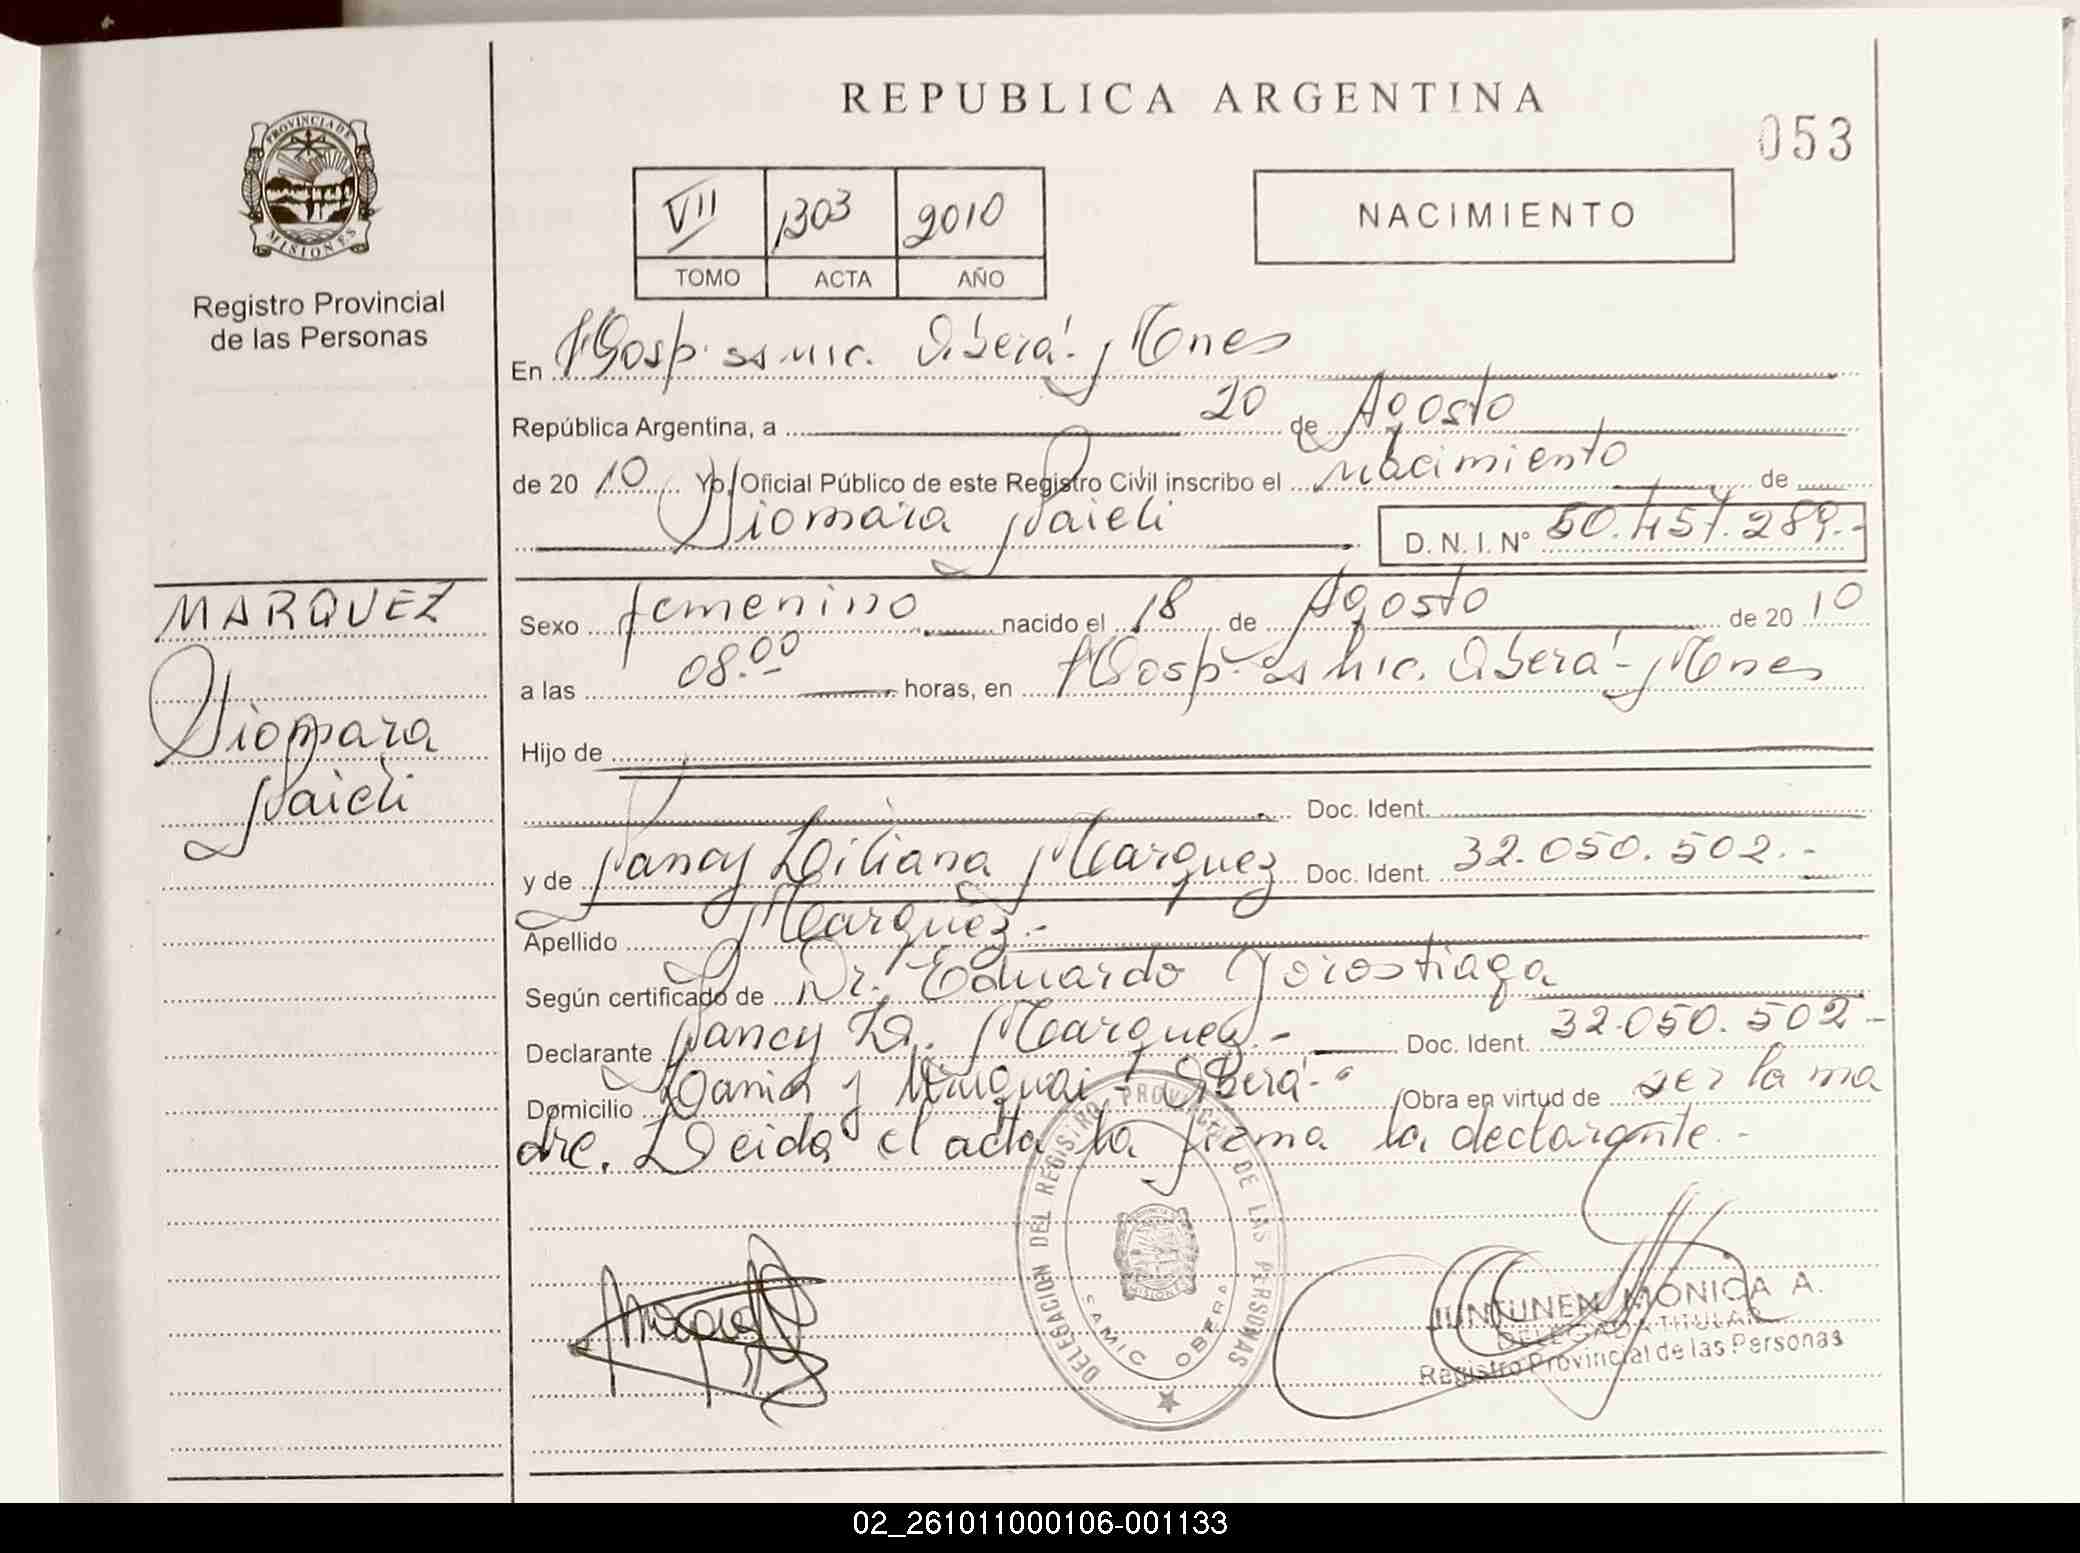 REPUBLICA ARGENTINA
053
PROVINCIA DE
MISIONES
Registro Provincial
de las Personas
VII 1303 2010
TOMO ACTA AÑO
NACIMIENTO
En Hosp. ss mic. Oberá - Mnes
República Argentina, a 20 de Agosto
de 20 10 Yo, Oficial Público de este Registro Civil inscribo el Nacimiento de
Xiomara Naieli D. N. I. Nº 50.457.289.-
MARQUEZ
Xiomara
Naieli
Sexo femenino nacido el 18 de Agosto de 20 10
a las 08.00 horas, en Hosp. ss mic. Oberá - Mnes
Hijo de
Doc. Ident.
y de Nancy Liliana Marquez Doc. Ident. 32.050.502.-
Apellido Marquez.-
Según certificado de Dr. Eduardo Gorostiaga
Declarante Nancy L. Marquez.- Doc. Ident. 32.050.502-
Domicilio y Uruguai - Oberá - Obra en virtud de ser la ma
dre. Leida el acta la firma la declarante.-
DELEGACION DEL REGISTRO PROVINCIAL DE LAS PERSONAS
MISIONES
SAMIC OBERA
JUNTUNEN MONICA A.
DELEGADA TITULAR
Registro Provincial de las Personas
02_261011000106-001133